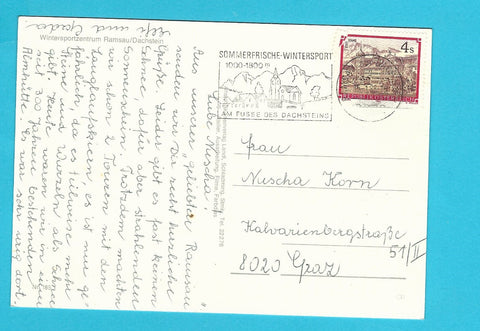 Wintersportzentrum Ramsau/Dachstein
Liebe Nuscha!
Aus unserer "geliebten Ramsau"
senden wir Dir recht herzliche
Grüße. Leider gibt es fast keinen
Schnee, dafür aber strahlenden
Sonnenschein. Trotzdem machten
wir schon 2 Touren mit den
Langlaufskiern, es ist nur ge-
fährlich, da es teilweise mehr
Steine und Wurzeln als Schnee
gibt. Heute waren wir in einer
seit 300 Jahren bestehenden
Almhütte. Es war sehr urig dort.
und
SOMMERFRISCHE-WINTERSPORT
1000-1800 m
AM FUSSE DES DACHSTEINS
4 S
REPUBLIK ÖSTERREICH
Frau
Nuscha Korn
Kalvarienbergstraße
51/II
8020 Graz